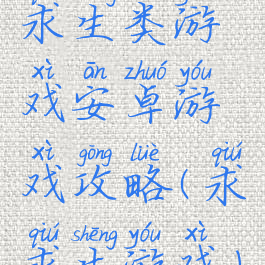 求生类游
xì ān zhuó yóu
戏安卓游
xì gōng lüè qiú
戏攻略(求
qiú shēng yóu xì
求生游戏)